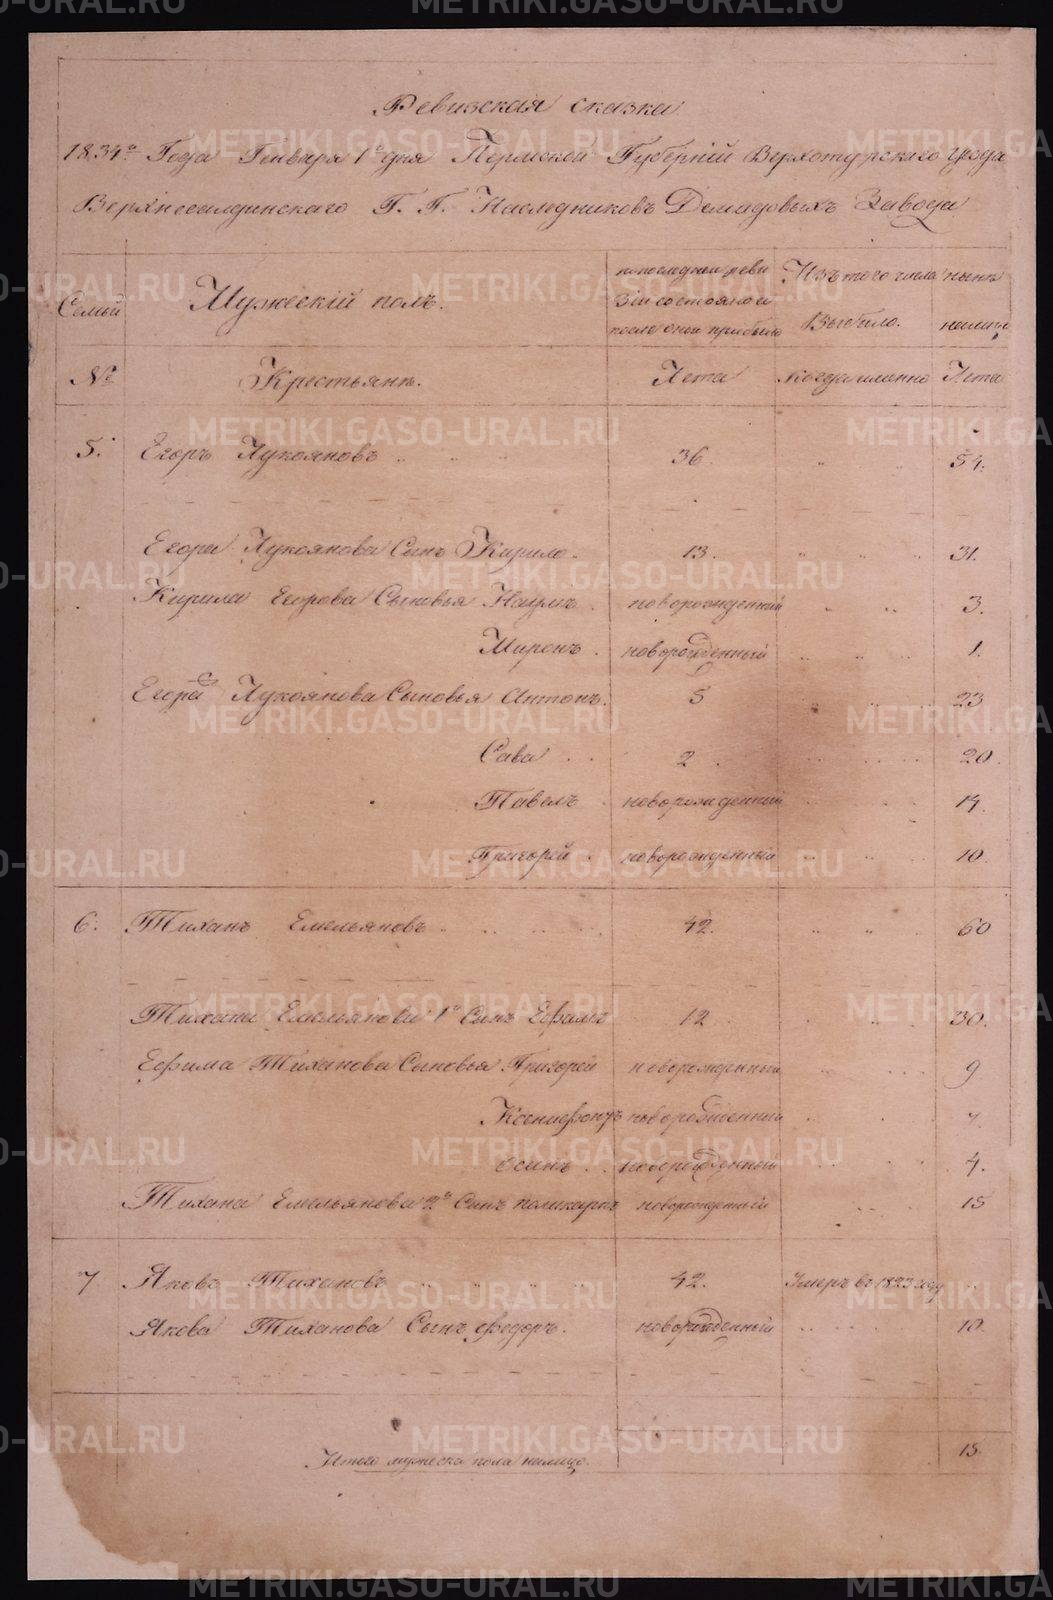 Ревизская сказка
1834го Года Генваря 1го дня Пермской Губернiй Верхотурскаго уезда
Верхнесалдинскаго Г. Г. Наследниковъ Демидовыхъ Завода
Семьй
Мужескiй полъ.
по последней реви
зiй состояло и
после оной прибыло
Изъ того числа
Выбыло.
ныне
налицо
№
Крестьяне.
Лета
когда именно
Лета
5. Егоръ Лукояновъ 36 54.
Егора Лукоянова Сынъ Кирило 13. 31.
Кирила Егорова Сыновья Наумъ новорожденный 3.
Миронъ новорожденный 1.
Егора Лукоянова Сыновья Антонъ. 5 23
Сава 2 20.
Павелъ новорожденный 14.
Григорей новорожденный 10.
6. Тиханъ Емельяновъ 42. 60
Тихана Емельянова 1й Сынъ Ефимъ 12 30.
Ефима Тиханова Сыновья Григорей новорожденный 9
Ксенофонтъ новорожденный
Осипъ новорожденный 4.
Тихана Емельянова 2й Сынъ поликарпъ новорожденный 15
7 Яковъ Тихановъ 42. Умеръ въ 1823 году
Якова Тиханова Сынъ федоръ. новорожденный 10.
Итого мужеска пола налицо. 15
METRIKI.GASO-URAL.RU